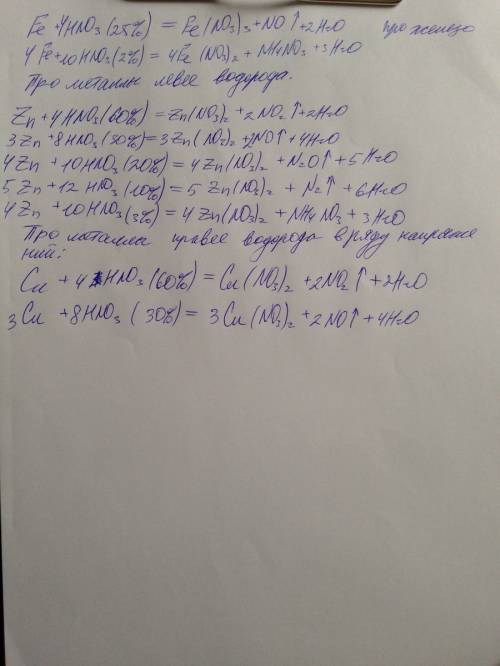 Fe + 4HNO₃ (25%) = Fe(NO₃)₃ + NO↑ + 2H₂O про железо
4Fe + 10HNO₃ (2%) = 4Fe(NO₃)₂ + NH₄NO₃ + 3H₂O
Про металлы левее водорода.
Zn + 4HNO₃ (60%) = Zn(NO₃)₂ + 2NO₂↑ + 2H₂O
3Zn + 8HNO₃ (30%) = 3Zn(NO₃)₂ + 2NO↑ + 4H₂O
4Zn + 10HNO₃ (20%) = 4Zn(NO₃)₂ + N₂O↑ + 5H₂O
5Zn + 12HNO₃ (10%) = 5Zn(NO₃)₂ + N₂↑ + 6H₂O
4Zn + 10HNO₃ (3%) = 4Zn(NO₃)₂ + NH₄NO₃ + 3H₂O
Про металлы правее водорода в ряду напряже
ний:
Cu + 4HNO₃ (60%) = Cu(NO₃)₂ + 2NO₂↑ + 2H₂O
3Cu + 8HNO₃ (30%) = 3Cu(NO₃)₂ + 2NO↑ + 4H₂O